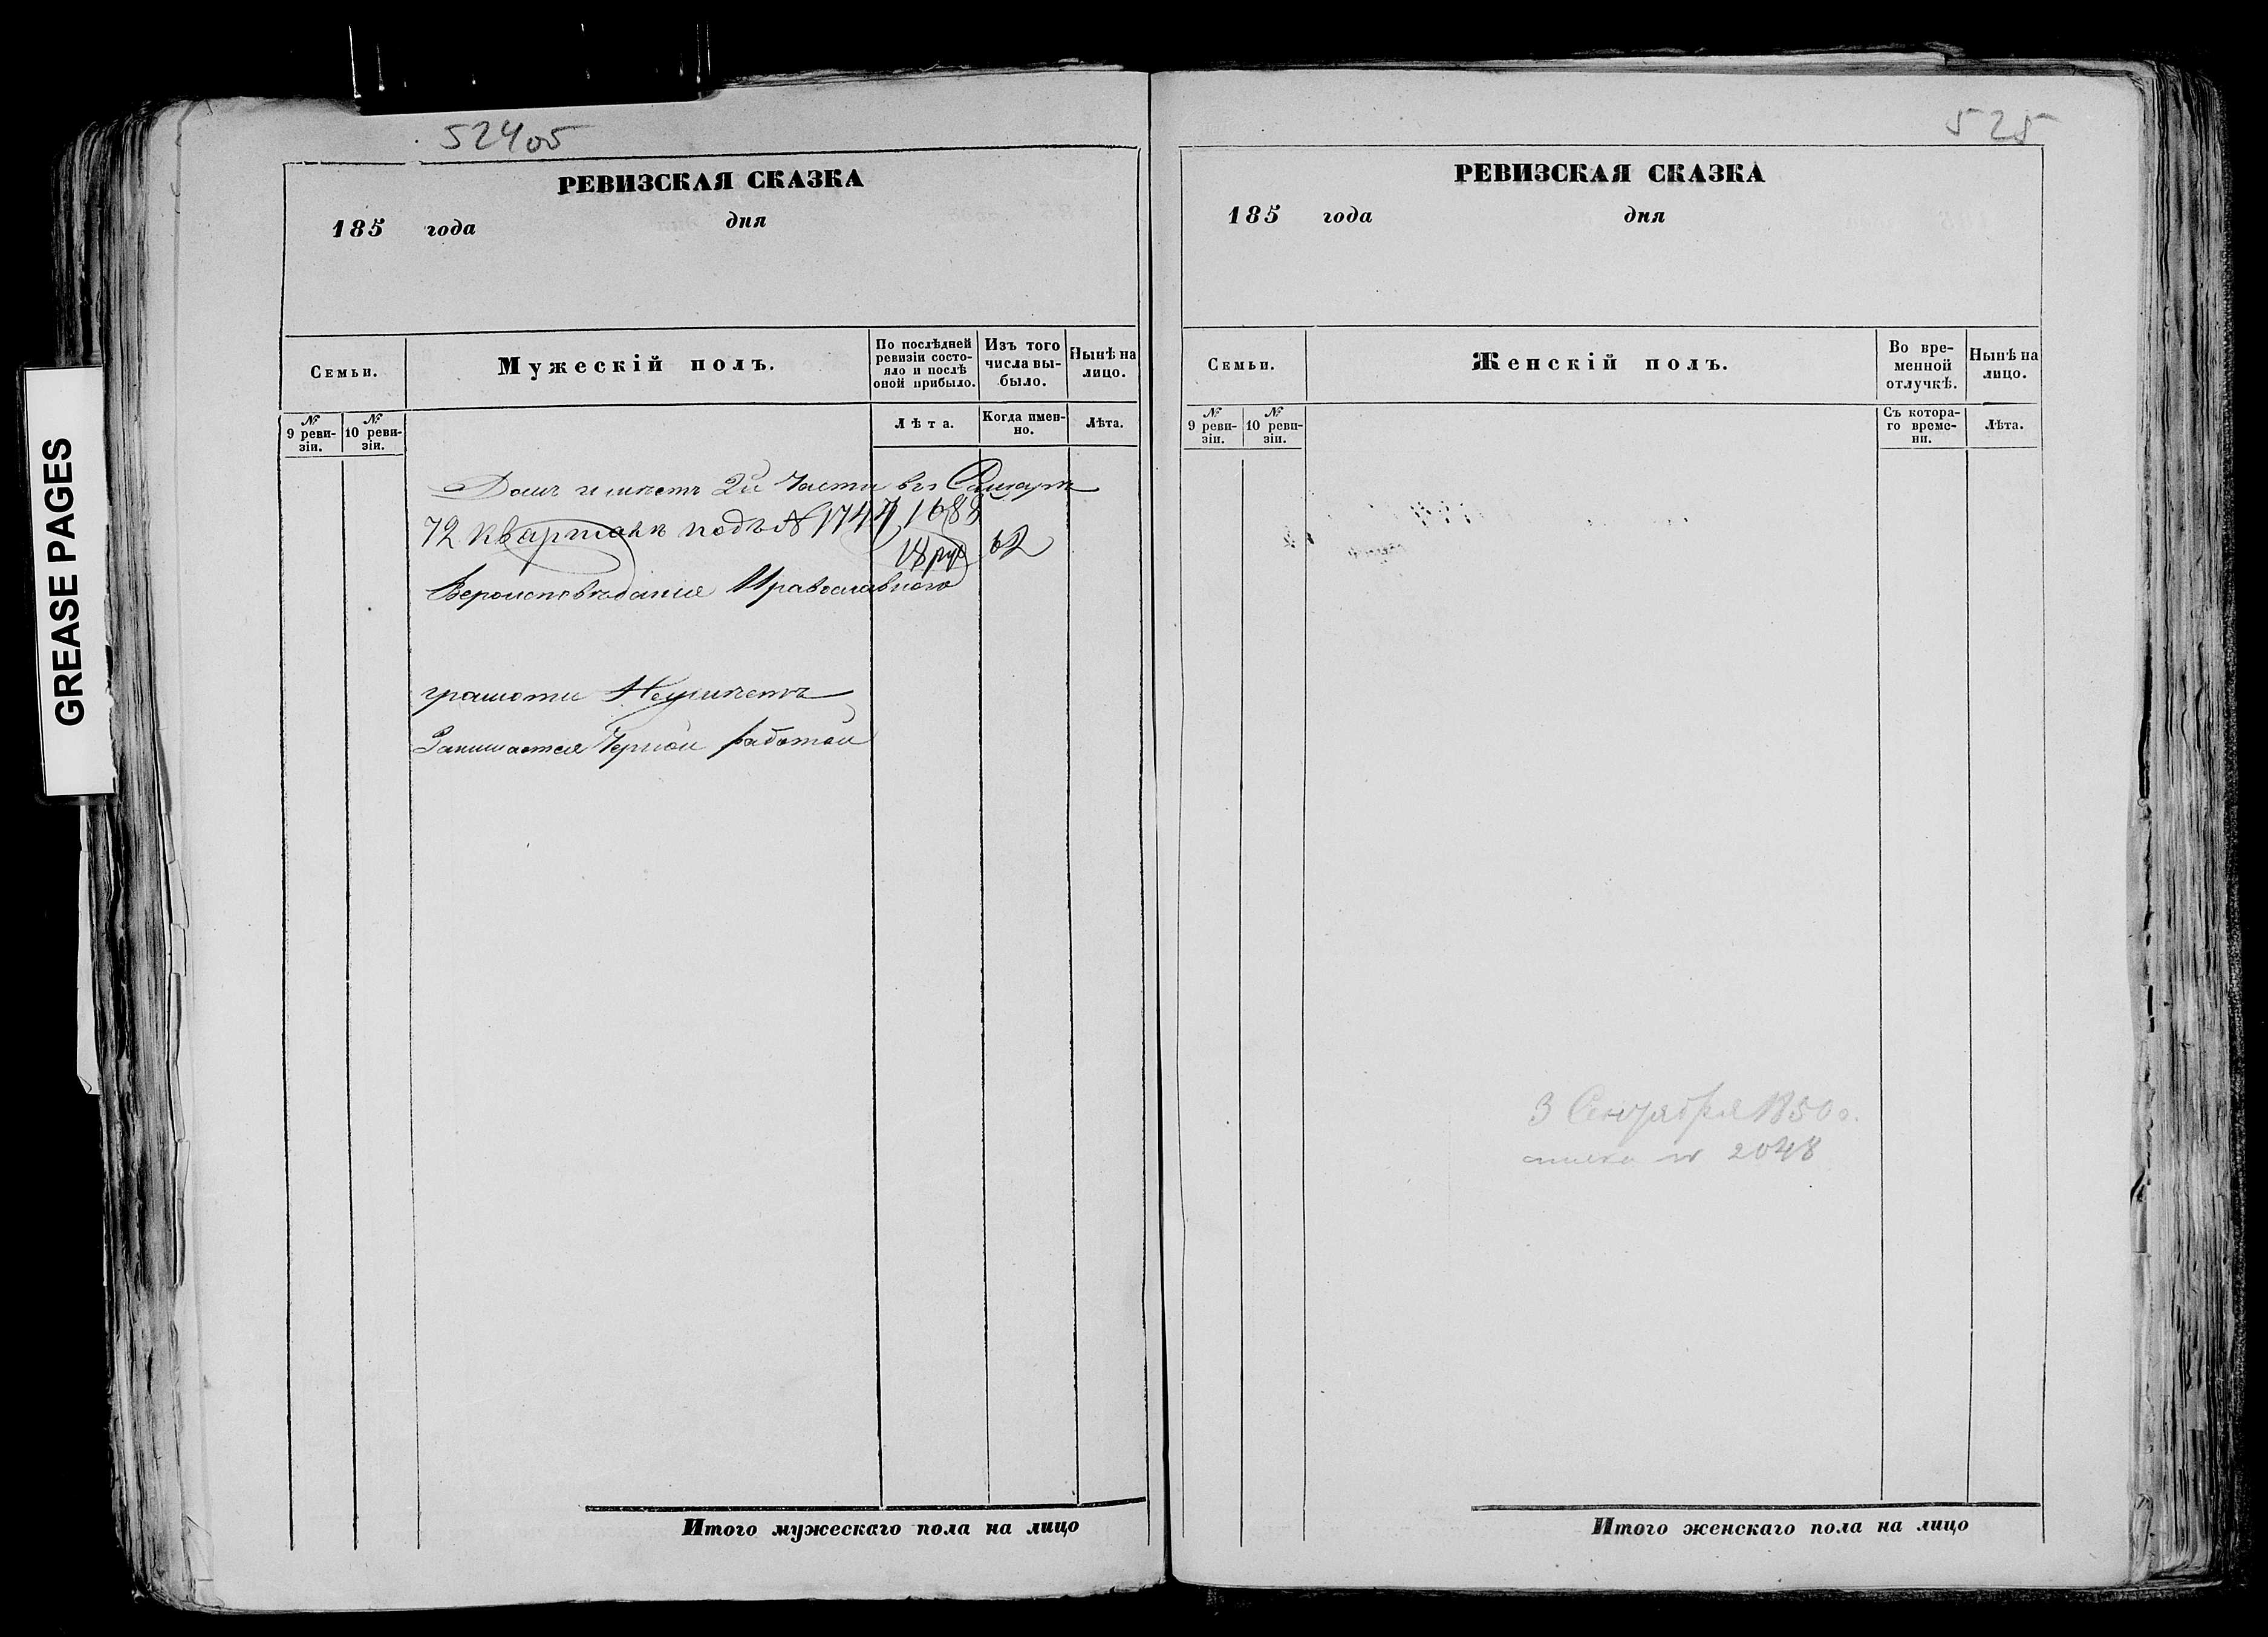 GREASE PAGES
524об
РЕВИЗСКАЯ СКАЗКА
185 года дня
Семьи.
Мужескій полъ.
По послѣдней ревизіи состояло и послѣ оной прибыло.
Изъ того числа выбыло.
Нынѣ на лицо.
№ 9 ревизіи.
№ 10 ревизіи.
Лѣта.
Когда именно.
Лѣта.
Домъ имѣетъ 2й Части въ Самарѣ
72 кварталѣ подъ № 1744, 1688
18 руб 62
Вероисповѣдания Православнаго
грамоте Неумѣетъ
Занимается Черной работой
Итого мужескаго пола на лицо
525
РЕВИЗСКАЯ СКАЗКА
185 года дня
Семьи.
Женскій полъ.
Во временной отлучкѣ.
Нынѣ на лицо.
№ 9 ревизіи.
№ 10 ревизіи.
Съ котораго времени.
Лѣта.
3 Сентября 1850 г.
№ 2048
Итого женскаго пола на лицо